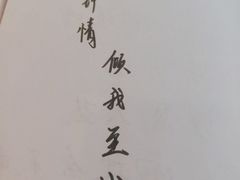 情
倾我至